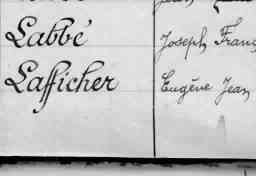 Labbé Joseph Franç
Lafficher Eugène Jean